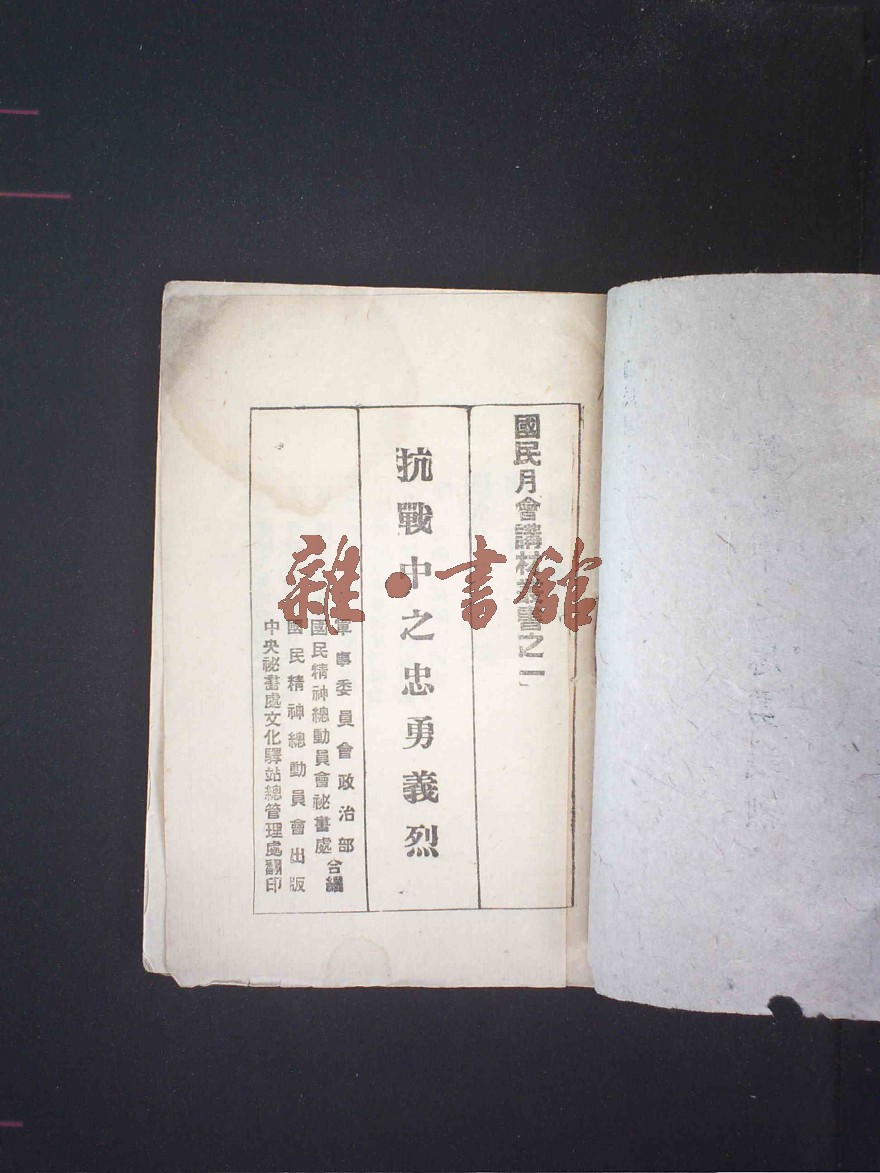 國民月會講材叢書之一
抗戰中之忠勇義烈
軍事委員會政治部
國民精神總動員會祕書處
合編
國民精神總動員會出版
中央祕書處文化驛站總管理處翻印
雜·書館